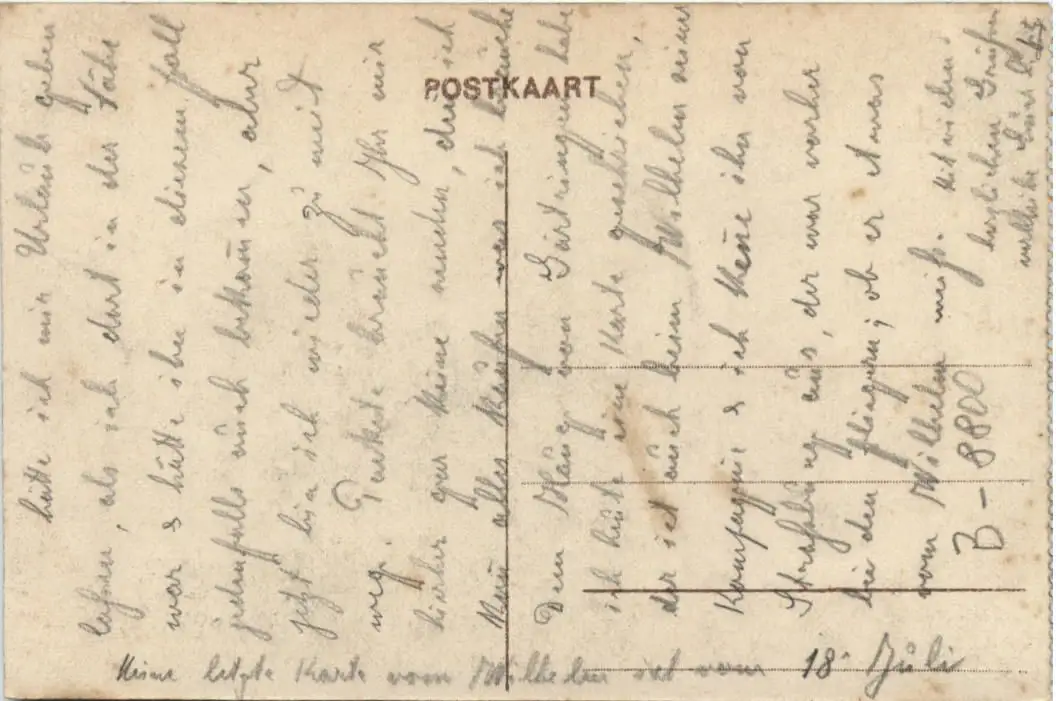 POSTKAART
hätte ich mir Urlaub geben
lassen, als ich dort in der Nähe
war & hätte ihn in diesem Fall
jedenfalls auch bekommen, aber
jetzt bin ich wieder zu weit
weg. Pakete braucht Ihr mir
hierher gar keine senden, da ich
alles kaufen was ich brauche
Dem von Gärtringen habe
ich heute eine Karte geschrieben,
der ist auch beim Wilhelm seiner
Kompagnie & ich kenne ihn von
Straßburg aus, der war vorher
bei den Fliegern; ob er etwas
vom Wilhelm weiß. Mit vielen
herzlichen Grüßen
verbleibe
Meine letzte Karte vom Wilhelm ist vom 18. Juli
B-8800